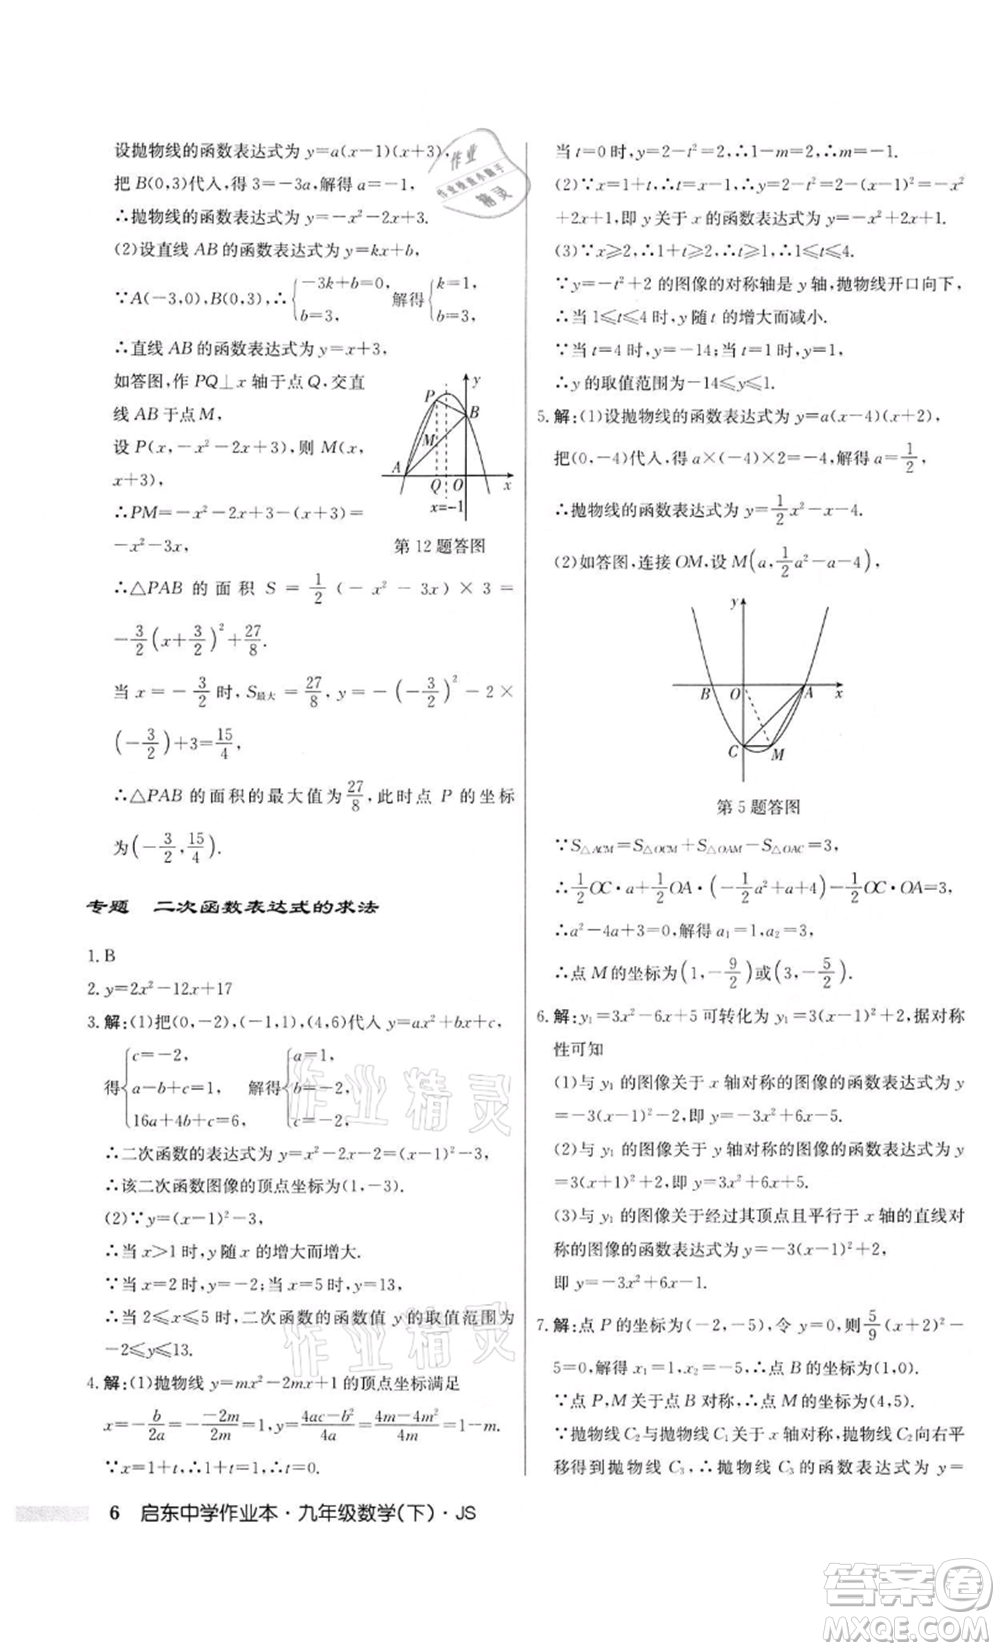 设抛物线的函数表达式为 y=a(x-1)(x+3),
把 B(0,3)代入,得 3=-3a,解得 a=-1,
∴抛物线的函数表达式为 y=-x²-2x+3.
(2)设直线 AB 的函数表达式为 y=kx+b,
∵A(-3,0),B(0,3),∴{-3k+b=0, b=3, 解得{k=1, b=3,
∴直线 AB 的函数表达式为 y=x+3,
如答图,作 PQ⊥x 轴于点 Q,交直
线 AB 于点 M,
设 P(x,-x²-2x+3),则 M(x,
x+3),
∴PM=-x²-2x+3-(x+3)=
-x²-3x,
y
P
B
M
A
Q
O
x
x=-1
第 12 题答图
∴△PAB 的面积 S=1/2(-x²-3x)×3=
-3/2(x+3/2)²+27/8.
当 x=-3/2时,S最大=27/8,y=-(-3/2)²-2×
(-3/2)+3=15/4,
∴△PAB 的面积的最大值为27/8,此时点 P 的坐标
为(-3/2,15/4).
专题 二次函数表达式的求法
1.B
2.y=2x²-12x+17
3.解:(1)把(0,-2),(-1,1),(4,6)代入 y=ax²+bx+c,
得{c=-2, a-b+c=1, 16a+4b+c=6, 解得{a=1, b=-2, c=-2,
∴二次函数的表达式为 y=x²-2x-2=(x-1)²-3,
∴该二次函数图像的顶点坐标为(1,-3).
(2)∵y=(x-1)²-3,
∴当 x>1 时,y 随 x 的增大而增大.
∵当 x=2 时,y=-2;当 x=5 时,y=13,
∴当 2≤x≤5 时,二次函数的函数值 y 的取值范围为
-2≤y≤13.
4.解:(1)抛物线 y=mx²-2mx+1 的顶点坐标满足
x=-b/2a=-(-2m)/2m=1,y=(4ac-b²)/4a=(4m-4m²)/4m=1-m.
∵x=1+t,∴t=0.
当 t=0 时,y=2-t²=2,∴1-m=2,∴m=-1.
(2)∵x=1+t,∴t=x-1,∴y=2-t²=2-(x-1)²=-x²
+2x+1,即 y 关于 x 的函数表达式为 y=-x²+2x+1.
(3)∵x≥2,∴1+t≥2,∴t≥1,∴1≤t≤4.
∵y=-t²+2 的图像的对称轴是 y 轴,抛物线开口向下,
∴当 1≤t≤4 时,y 随 t 的增大而减小.
∵当 t=4 时,y=-14;当 t=1 时,y=1,
∴y 的取值范围为-14≤y≤1.
5.解:(1)设抛物线的函数表达式为 y=a(x-4)(x+2),
把(0,-4)代入,得 a×(-4)×2=-4,解得 a=1/2,
∴抛物线的函数表达式为 y=1/2x²-x-4.
(2)如答图,连接 OM,设 M(a,1/2a²-a-4),
y
B
O
A
x
C
M
第 5 题答图
∵S△ACM=S△OCM+S△OAM-S△OAC=3,
∴1/2OC·a+1/2OA·(-1/2a²+a+4)-1/2OC·OA=3,
∴a²-4a+3=0,解得 a₁=1,a₂=3,
∴点 M 的坐标为(1,-9/2)或(3,-5/2).
6.解:y₁=3x²-6x+5 可转化为 y₁=3(x-1)²+2,据对称
性可知
(1)与 y₁ 的图像关于 x 轴对称的图像的函数表达式为 y
=-3(x-1)²-2,即 y=-3x²+6x-5.
(2)与 y₁ 的图像关于 y 轴对称的图像的函数表达式为 y
=3(x+1)²+2,即 y=3x²+6x+5.
(3)与 y₁ 的图像关于经过其顶点且平行于 x 轴的直线对
称的图像的函数表达式为 y=-3(x-1)²+2,
即 y=-3x²+6x-1.
7.解:点 P 的坐标为(-2,-5),令 y=0,则5/9(x+2)²-
5=0,解得 x₁=1,x₂=-5,∴点 B 的坐标为(1,0).
∵点 P,M 关于点 B 对称,∴点 M 的坐标为(4,5).
∵抛物线 C₂与抛物线 C₁关于 x 轴对称,抛物线 C₂向右平
移得到抛物线 C₃,∴抛物线 C₃的函数表达式为 y=
6 启东中学作业本·九年级数学(下)·JS
作业
作业检查小助手
精灵
作业精灵
作业精灵
答案圈
MXQE.COM